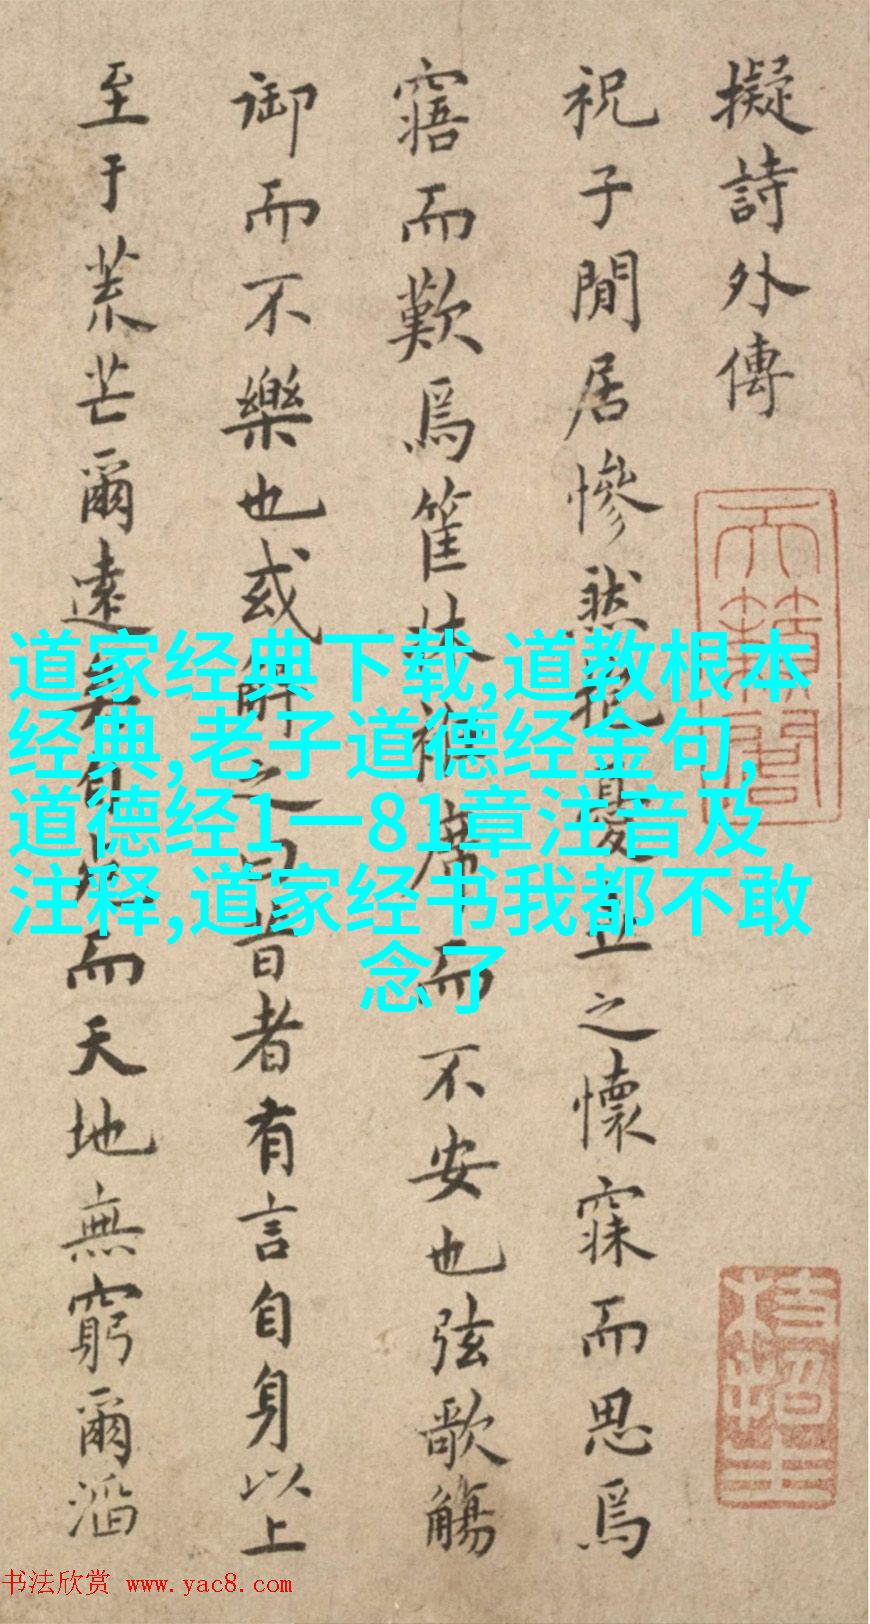 擬詩外傳
祝子閒居慘然抱憂之懷寐而思焉
寤而歎焉筐牀裀席而不安也弦歌觴
御而不樂也或解之曰昔者有言自身以上
至于荒芒爾遠矣自死而天地無窮爾滔
天籟閣
枝指生
道家经典下载,道教根本
经典,老子道德经金句,
道德经1一81章注音及
注释,道家经书我都不敢
念了
书法欣赏 www.yac8.com